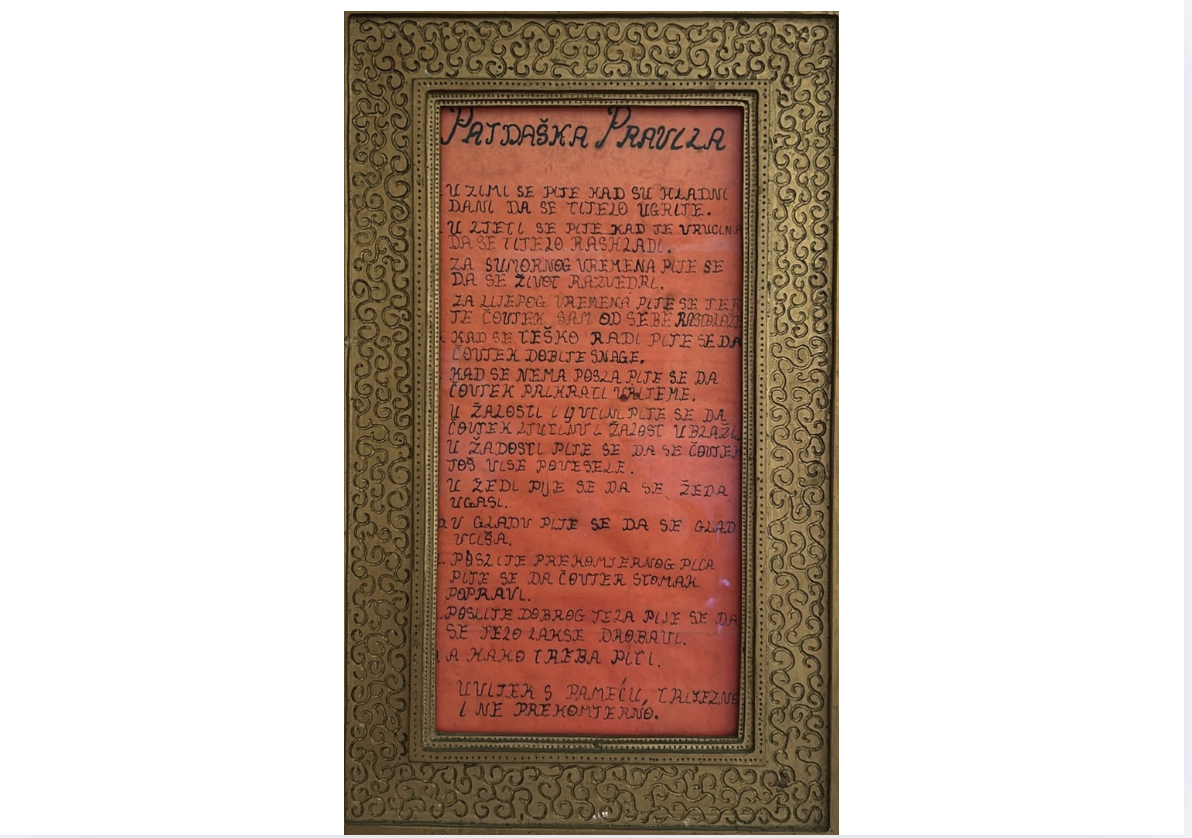 PAJDAŠKA PRAVILA
U ZIMI SE PIJE KAD SU HLADNI
DANI DA SE TIJELO UGRIJE.
U LJETI SE PIJE KAD JE VRUCINA
DA SE TIJELO RASHLADI.
ZA SUMORNOG VREMENA PIJE SE
DA SE ŽIVOT RAZVEDRI.
ZA LIJEPOG VREMENA PIJE SE JER
JE ČOVJEK SAM OD SEBE
KAD SE TEŠKO RADI PIJE SE DA
ČOVJEK DOBIJE SNAGE.
KAD SE NEMA POSLA PIJE SE DA
ČOVJEK PRIKRATI VRIJEME.
U ŽALOSTI I LJUTINI PIJE SE DA
ČOVJEK LJUTINU I ŽALOST UBLAŽI
U ŽADOSTI PIJE SE DA SE ČOVJEK
JOŠ VISE POVESELE.
U ŽEDI PIJE SE DA SE ŽEDA
UGASI.
U GLADU PIJE SE DA SE GLAD
UTIŠA.
POSLIJE PREKOMJERNOG PICA
PIJE SE DA ČOVJEK STOMAK
POPRAVI.
POSLIJE DOBROG JELA PIJE SE DA
SE JELO LAKSE DROBAVI.
A KAKO TREBA PITI.
UVIJEK S PAMEĆU, TRIJEZNO
I NE PREKOMJERNO.